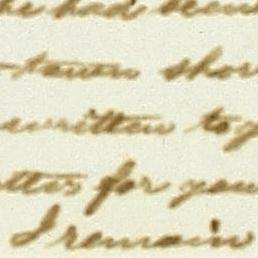 he had been
town shor
written to y
tter for you
I remain